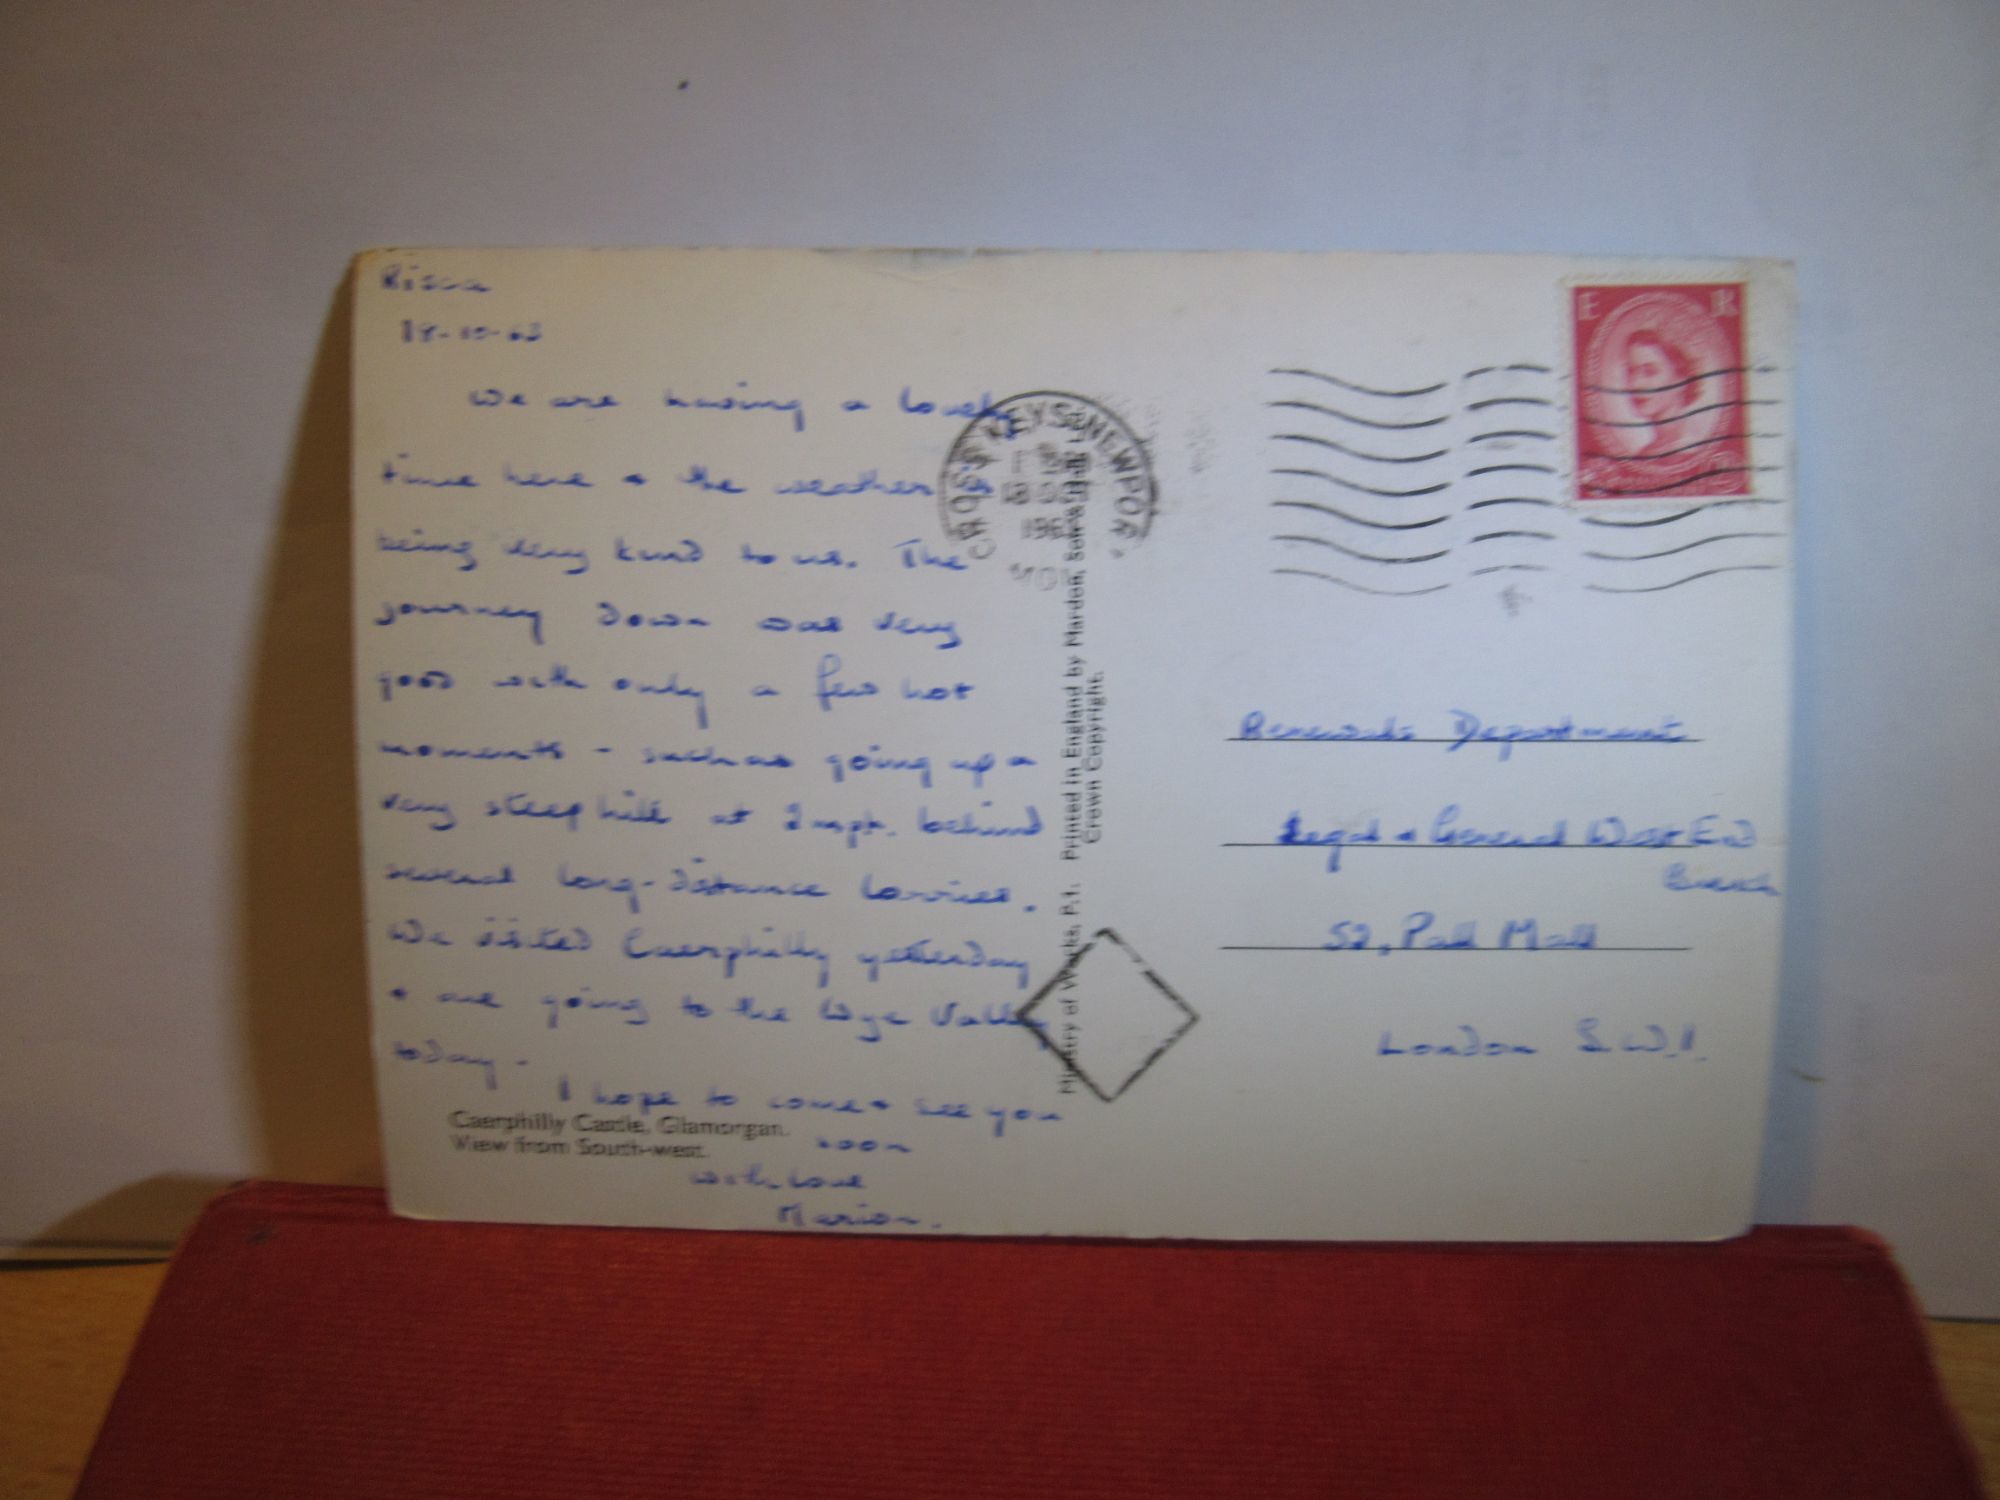 Risca
18-10-63
We are having a lovely
time here + the weather is
being very kind to us. The
journey down was very
good with only a few hot
moments - such as going up a
very steep hill at 2 mph. behind
several long-distance lorries.
We visited Caerphilly yesterday
+ are going to the Wye Valley
today -
I hope to come + see you
soon
with love
Marion.
Caerphilly Castle, Glamorgan.
View from South-west.
CROSS KEYS NEWPORT
MON
Ministry of Works, P.1. Printed in England by Mardon, Son
Crown Copyright.
E R
Renewals Department
Legal + General West End
Branch
52, Pall Mall
London S.W.1.